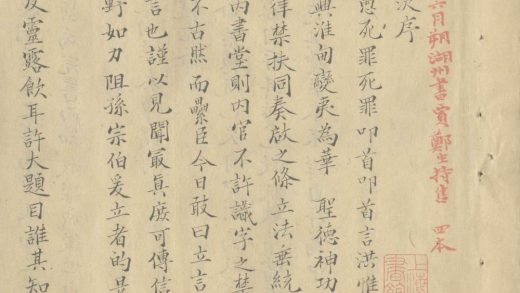 月朔湖州書賓鄭生持售 四本
序
死罪死罪叩首叩首言洪惟
興淮甸變夷為華 聖德神功
律禁扶同奏啟之條立法垂統
內書堂則內官不許識字之禁
不古然而纍臣今日敢曰立言
言也謹以見聞最真庶可傳信
野如刀阻孫宗伯爰立者的是
靈露飲耳許大題目誰其知